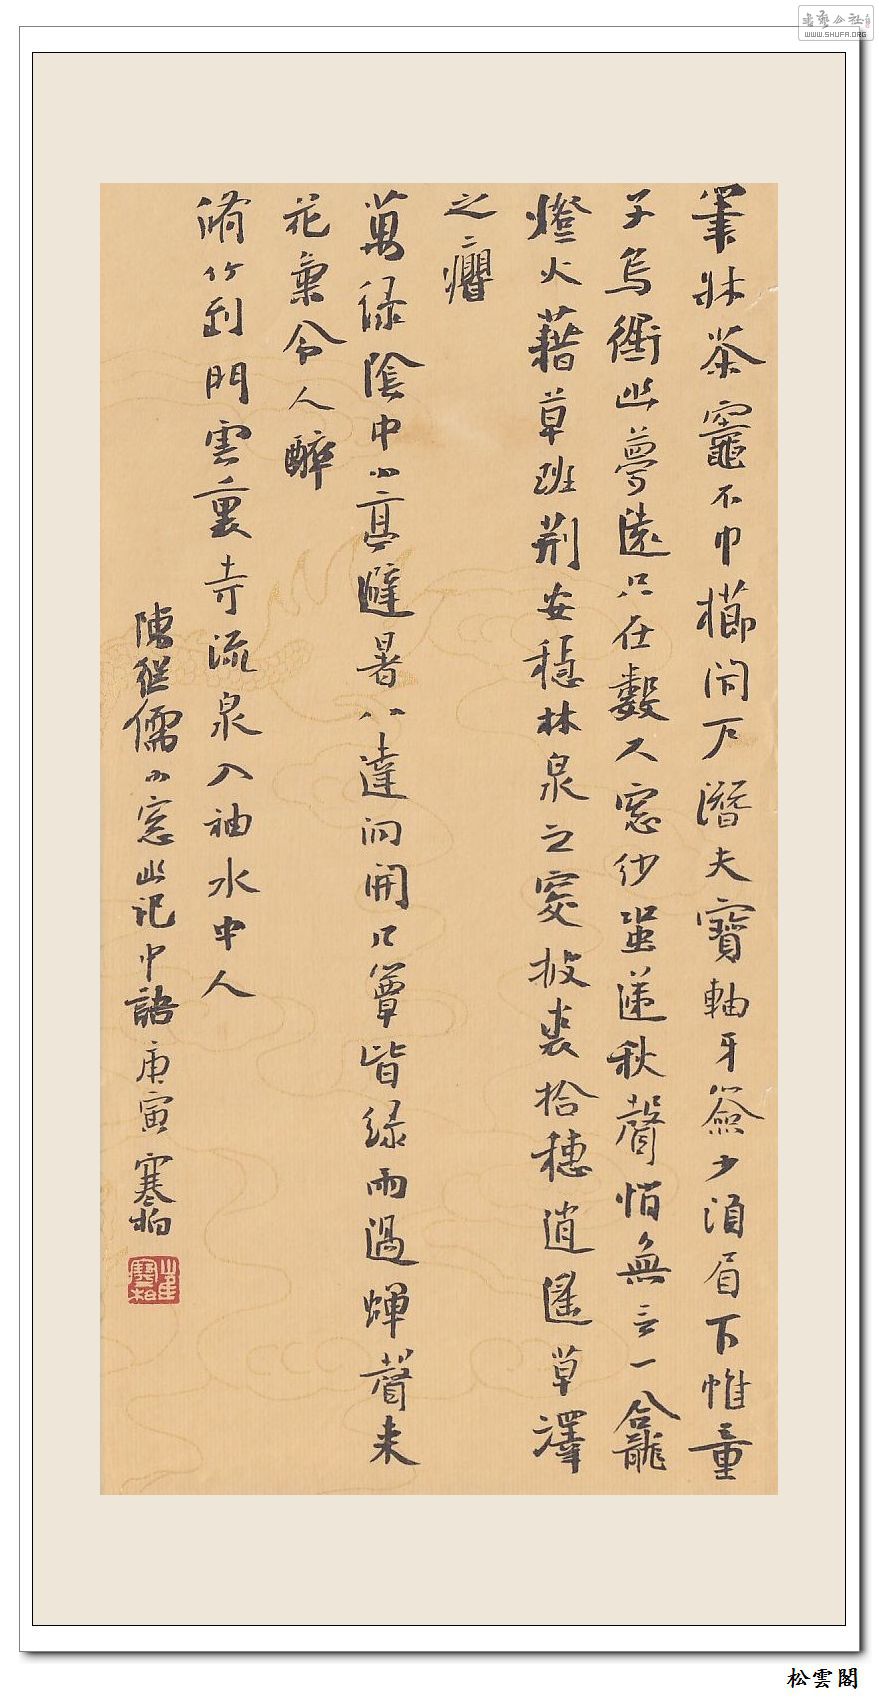 筆牀茶竈不巾櫛閉户潛夫寶軸牙籤少須眉下帷董
子鳥銜幽夢遠只在數尺窓紗蛩遞秋聲悄無言一龕
燈火藉草班荆安穩林泉之窔披裘拾穗逍遙草澤
之癯
萬緑陰中小亭避暑八達洞開几簟皆緑雨過蟬聲来
花氣令人醉
脩竹到門雲裏寺流泉入袖水中人
陳繼儒小窓幽記中語庚寅寒柏
松雲閣
WWW.SHUFA.ORG